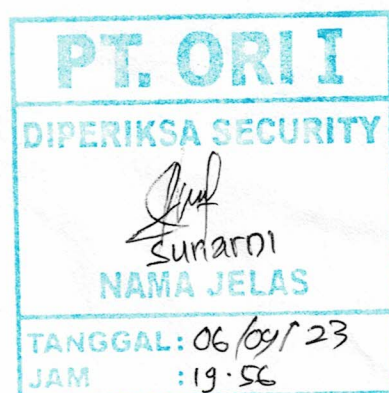 PT. ORI I
DIPERIKSA SECURITY
Sunarni
NAMA JELAS
TANGGAL: 06/09/23
JAM : 19.56